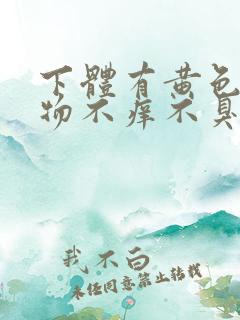 下體有黃色
物不痒不臭
我不白
未经同意禁止转载